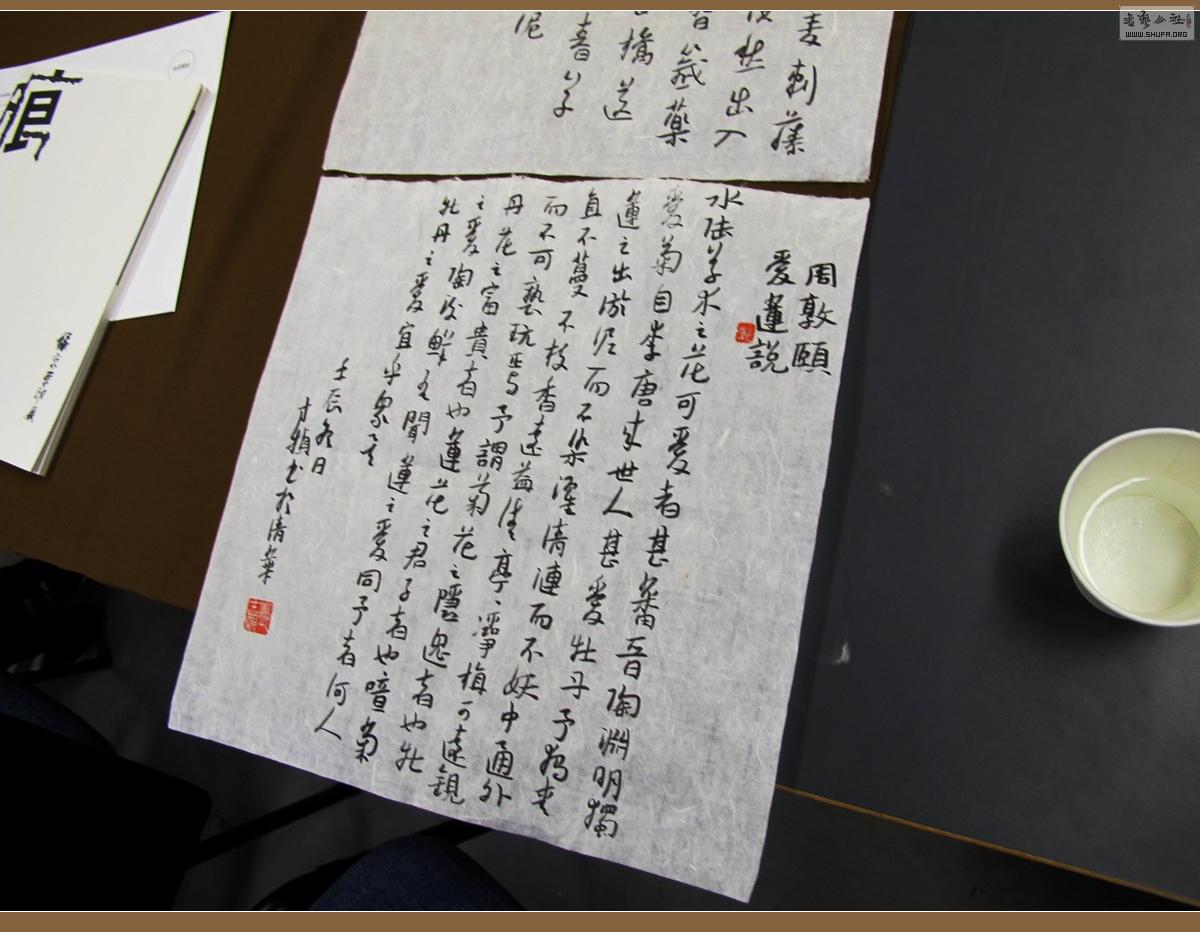 周敦頤
愛蓮説
水陸草木之花可愛者甚蕃晉陶淵明獨
愛菊自李唐来世人甚愛牡丹予獨爱
蓮之出淤泥而不染濯清漣而不妖中通外
直不蔓不枝香遠益清亭、淨植可遠觀
而不可褻玩焉予謂菊花之隱逸者也牡
丹花之富貴者也蓮花之君子者也噫菊
之愛陶後鮮有聞蓮之愛同予者何人
牡丹之愛宜乎衆矣
壬辰冬日
书於清華
刺
出入
藥
送
泥
痕
WWW.SHUFA.ORG